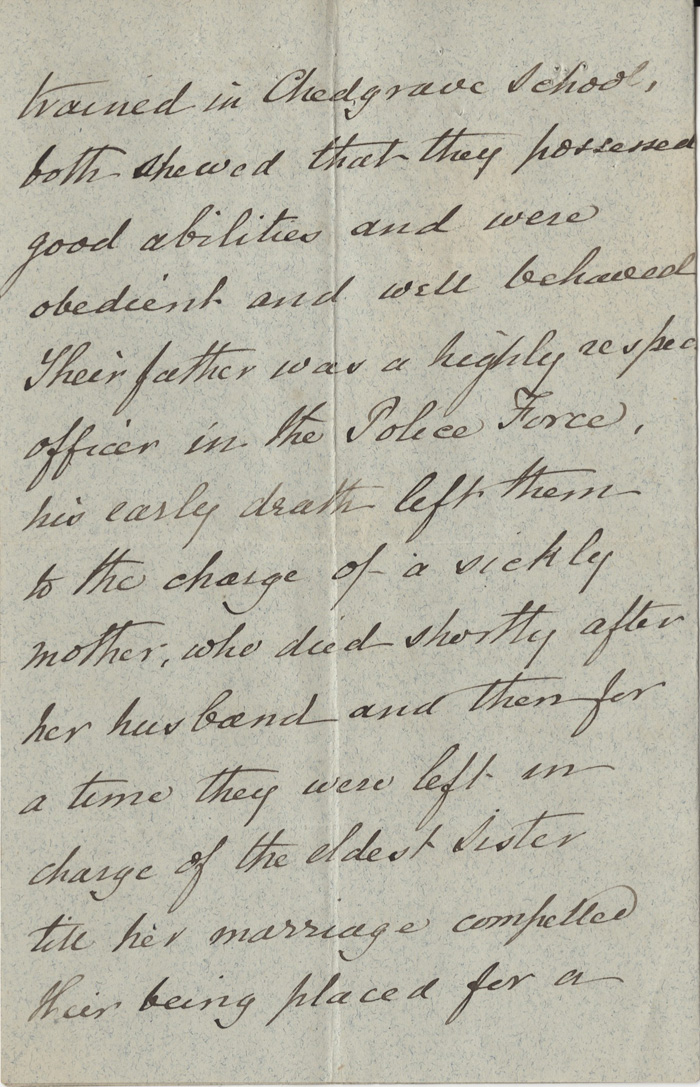 trained in Chedgrave School,
both shewed that they possessed
good abilities and were
obedient and well behaved
Their father was a highly respec
officer in the Police Force,
his early death left them
to the charge of a sickly
mother, who died shortly after
her husband and then for
a time they were left in
charge of the eldest Sister
till her marriage compelled
their being placed for a